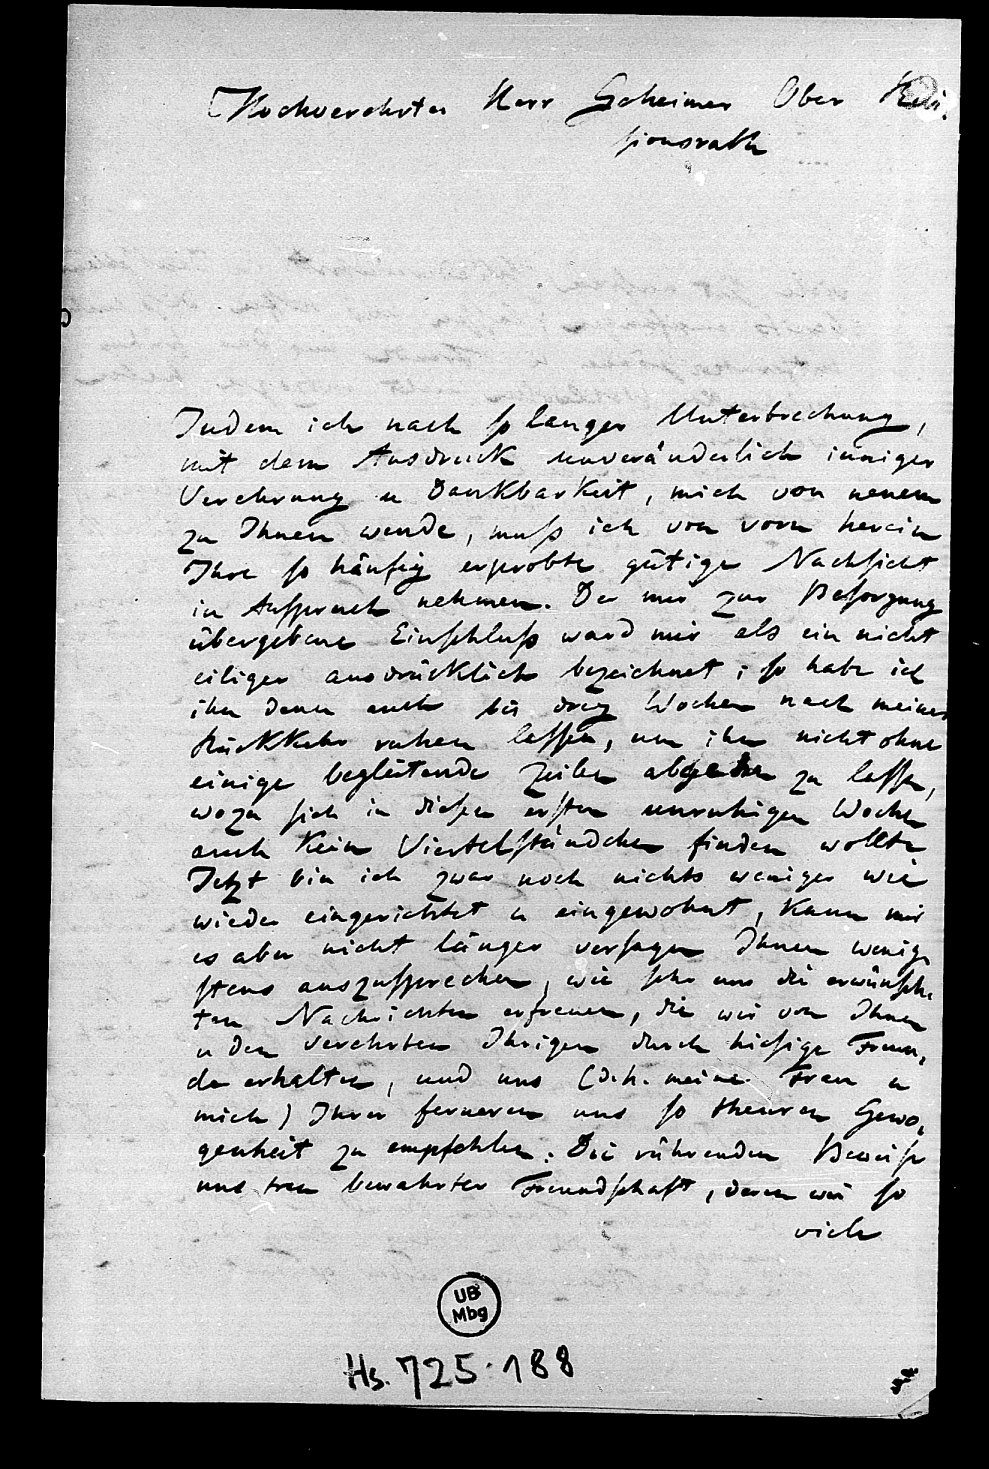 Hochverehrter Herr Geheimer Ober Revi-
sionsrath
Indem ich nach so langer Unterbrechung,
mit dem Ausdruck unveränderlich inniger
Verehrung u Dankbarkeit, mich von neuem
zu Ihnen wende, muß ich von vorn herein
Ihre so häufig erprobte gütige Nachsicht
in Anspruch nehmen. Der mir zur Besorgung
übergebene Einschluß ward mir als ein nicht
eiliger ausdrücklich bezeichnet; so habe ich
ihn denn auch bis drey Wochen nach meiner
Rückkehr ruhen lassen, um ihn nicht ohne
einige begleitende Zeilen abgehen zu lassen,
wozu sich in diesen ersten unruhigen Wochen
auch kein Viertelstündchen finden wollte
Jetzt bin ich zwar noch nichts weniger wie
wieder eingerichtet u eingewohnt, kann mir
es aber nicht länger versagen Ihnen wenig-
stens auszusprechen, wie sehr uns die erwünsch-
ten Nachrichten erfreuen, die wir von Ihnen
u den verehrten Ihrigen durch hiesige Freun-
de erhalten, und uns (d.h. meine Frau u
mich) Ihrer ferneren uns so theuren Gewo-
genheit zu empfehlen. Die rührenden Beweise
uns treu bewahrter Freundschaft, deren wir so
viele
UB
Mbg
Hs. 725:188